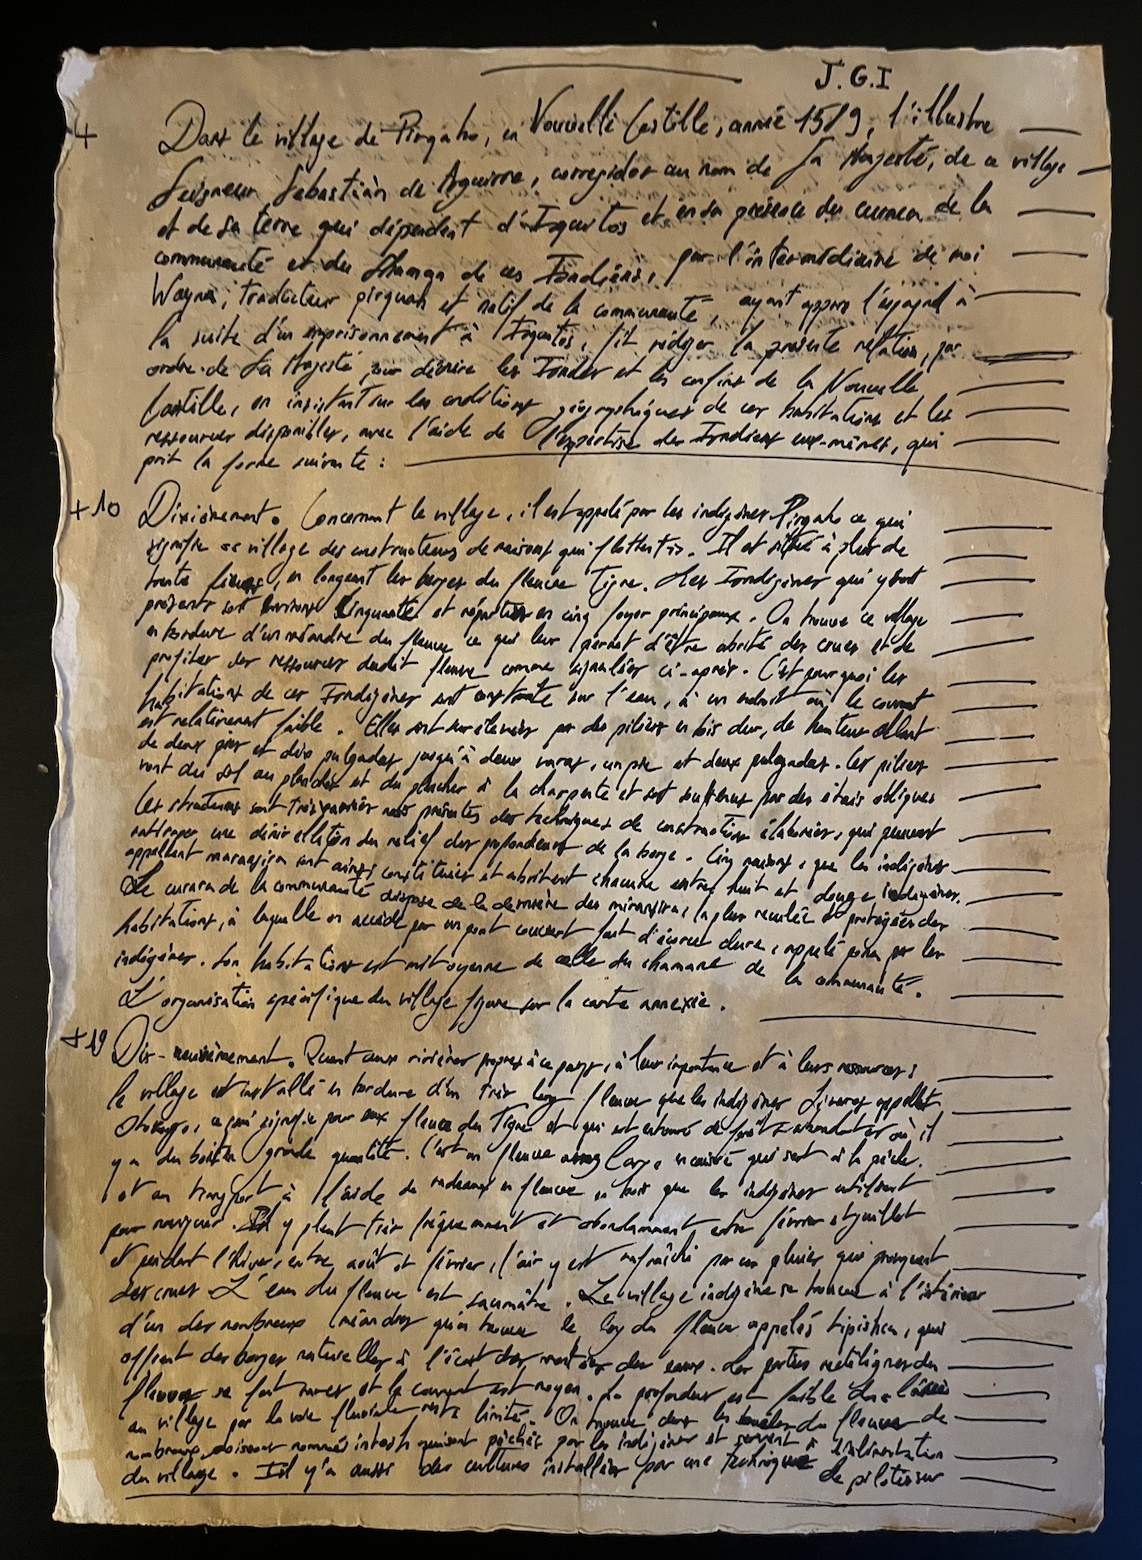 J.G.I
4
Dans le village de Pirqaho, en Nouvelle Castille, année 1589, l'illustre
Seigneur Sebastián de Aguirre, corregidor au nom de Sa Majesté, de ce village
et de sa terre qui dépendent d'Iquitos et en la présence du curaca de la
communauté et du Shaman de ces Indiens, par l'intermédiaire de moi
Wayna, traducteur pirquah et natif de la communauté, ayant appris l'espagnol à
la suite d'un emprisonnement à Iquitos, fit rédiger la présente relation, par
ordre de Sa Majesté, pour décrire les Indes et les confins de la Nouvelle
Castille, en insistant sur les conditions géographiques de ces habitations et les
ressources disponibles, avec l'aide de l'expertise des Indiens eux-mêmes, qui
prit la forme suivante :
+10 Dixièmement. Concernant le village, il est appelé par les indigènes Pirqaho ce qui
signifie << village des constructeurs de maisons qui flottent >>. Il est situé à plus de
trente lieues, en longeant les berges du fleuve Tigre. Les Indigènes qui y sont
présents sont environ cinquante et répartis en cinq foyer principaux. On trouve ce village
en bordure d'un méandre du fleuve ce qui leur permet d'être abrité des crues et de
profiter des ressources dudit fleuve comme signalées ci-après. C'est pourquoi les
habitations de ces Indigènes sont construite sur l'eau, à un endroit où le courant
est relativement faible. Elles sont surélevées par des piliers en bois dur, de hauteur allant
de deux pies et dix pulgadas jusqu'à deux varas, un pie et deux pulgadas. Ces piliers
vont du sol au plancher et du plancher à la charpente et sont soutenus par des étais obliques
Les structures sont très garnies mais présentes des techniques de construction élaborées, qui peuvent
anticiper une dénivellation du relief des profondeurs de la berge. Cinq maisons, que les indigènes
appellent maransira sont ainsi constituées et abritent chacune entre huit et douze indigènes.
Le curaca de la communauté dispose de la dernière des maransira, la plus reculée et protégée des
habitations, à laquelle on accède par un pont couvert fait d'écorce dure, appelé pona par les
indigènes. Son habitation est mitoyenne de celle du chamane de la communauté.
L'organisation spécifique du village figure sur la carte annexée.
+19 Dix-neuvièmement. Quant aux rivières propres à ce pays, à leur importance et à leurs ressources :
le village est installé en bordure d'un très long fleuve que les indigènes appellent
ce qui signifie pour eux fleuve du Tigre et qui est entouré de forêts abondantes où il
y a du bois en grande quantité. C'est un fleuve assez large, encaissé qui sert à la pêche.
et au transport à l'aide de radeaux en fleuve en bois que les indigènes utilisent
pour naviguer. Il y pleut très fréquemment et abondamment entre février et juillet
et pendant l'hiver, entre août et février, l'air y est rafraîchi par un pluies qui provoquent
des crues L'eau du fleuve est saumâtre. Le village indigène se trouve à l'intérieur
d'un des nombreux méandres qu'on trouve le long du fleuve appelés tipishca, qui
offrent des berges naturelles à l'écart des montées des eaux. Les parties rectilignes du
fleuve se font rares et le courant est moyen. La profondeur est faible donc l'accès
au village par la voie fluviale reste limité. On trouve dans les boucles du fleuve de
nombreux poissons nommés pêchés par les indigènes et servent à l'alimentation
du village. Il y'a aussi des cultures installées par une technique de pilotis sur